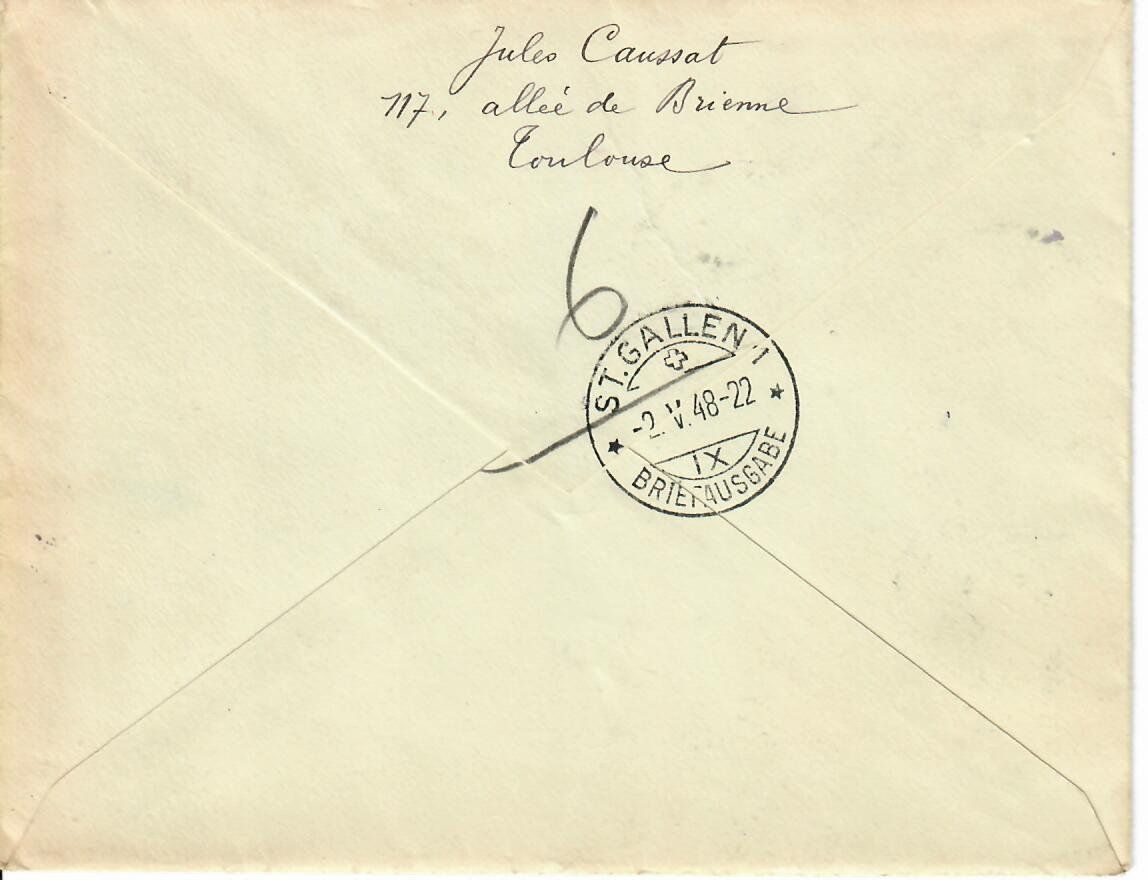 Jules Caussat
117, allée de Brienne
Toulouse
6
ST. GALLEN 1
-2. V. 48-22
IX
BRIEFAUSGABE